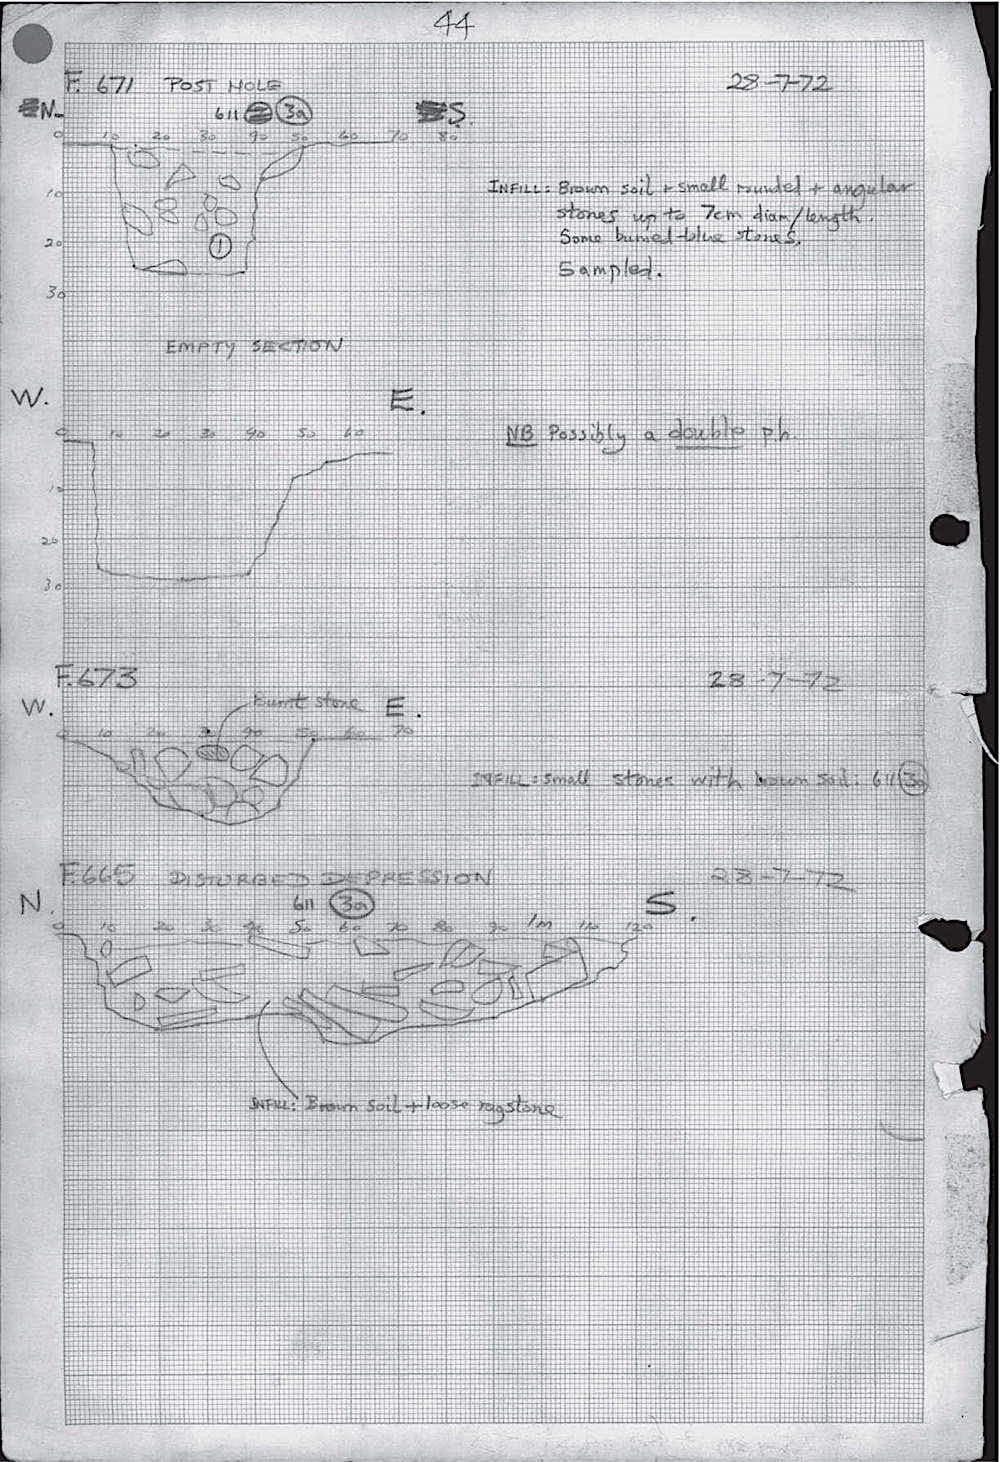 44
F. 671 POST HOLE 28-7-72
N. 611 3a S.
0 10 20 30 40 50 60 70 80
10
20
30
1
INFILL: Brown soil + small rounded + angular
stones up to 7cm diam/length.
Some burned-blue stones.
Sampled.
EMPTY SECTION
W. E.
0 10 20 30 40 50 60
10
20
30
NB Possibly a double ph.
F.673 28-7-72
W. Burnt stone E.
0 10 20 30 40 50 60 70
INFILL: Small stones with brown soil. 611 3a
F.665 DISTURBED DEPRESSION 28-7-72
N. 611 3a S.
0 10 20 30 40 50 60 70 80 90 1m 110 120
INFILL: Brown soil + loose ragstone